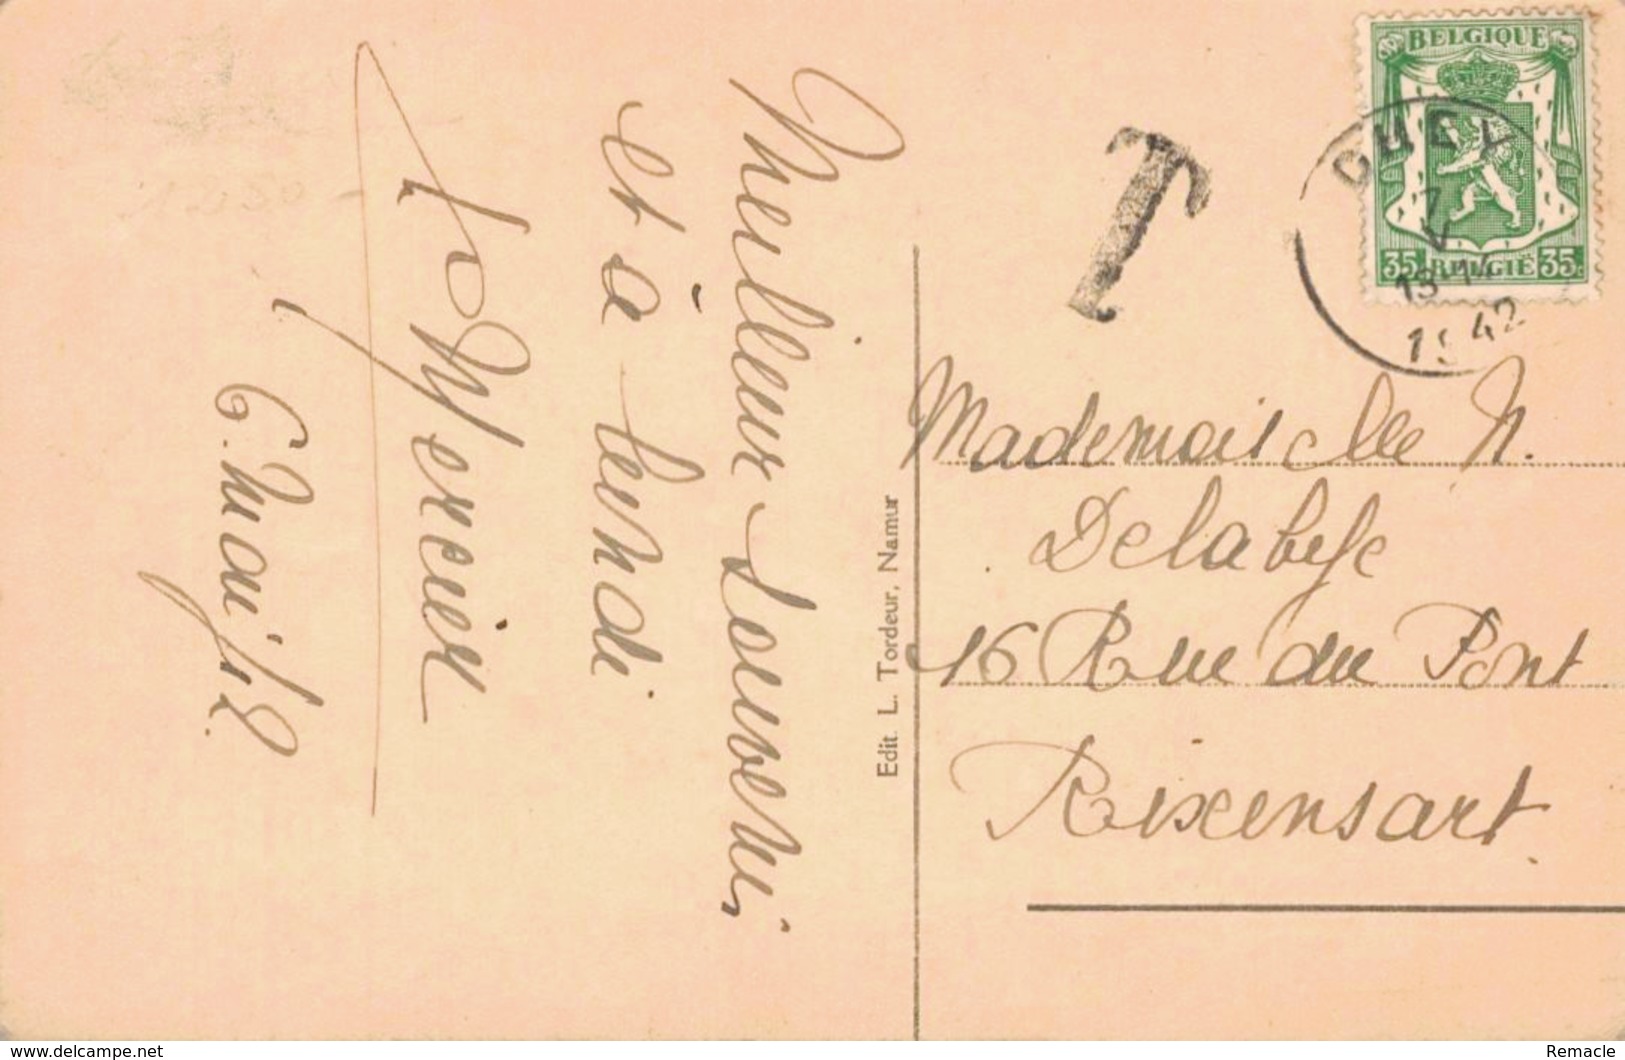 Meilleur Souvenir
et à lundi
Mercier
6. Mai 42.
Edit. L. Tordeur, Namur
T
BELGIQUE
35 BELGIË 35
7
V
1942
Mademoiselle N.
Delabye
16 Rue du Pont
Rixensart.
www.delcampe.net
Remacle